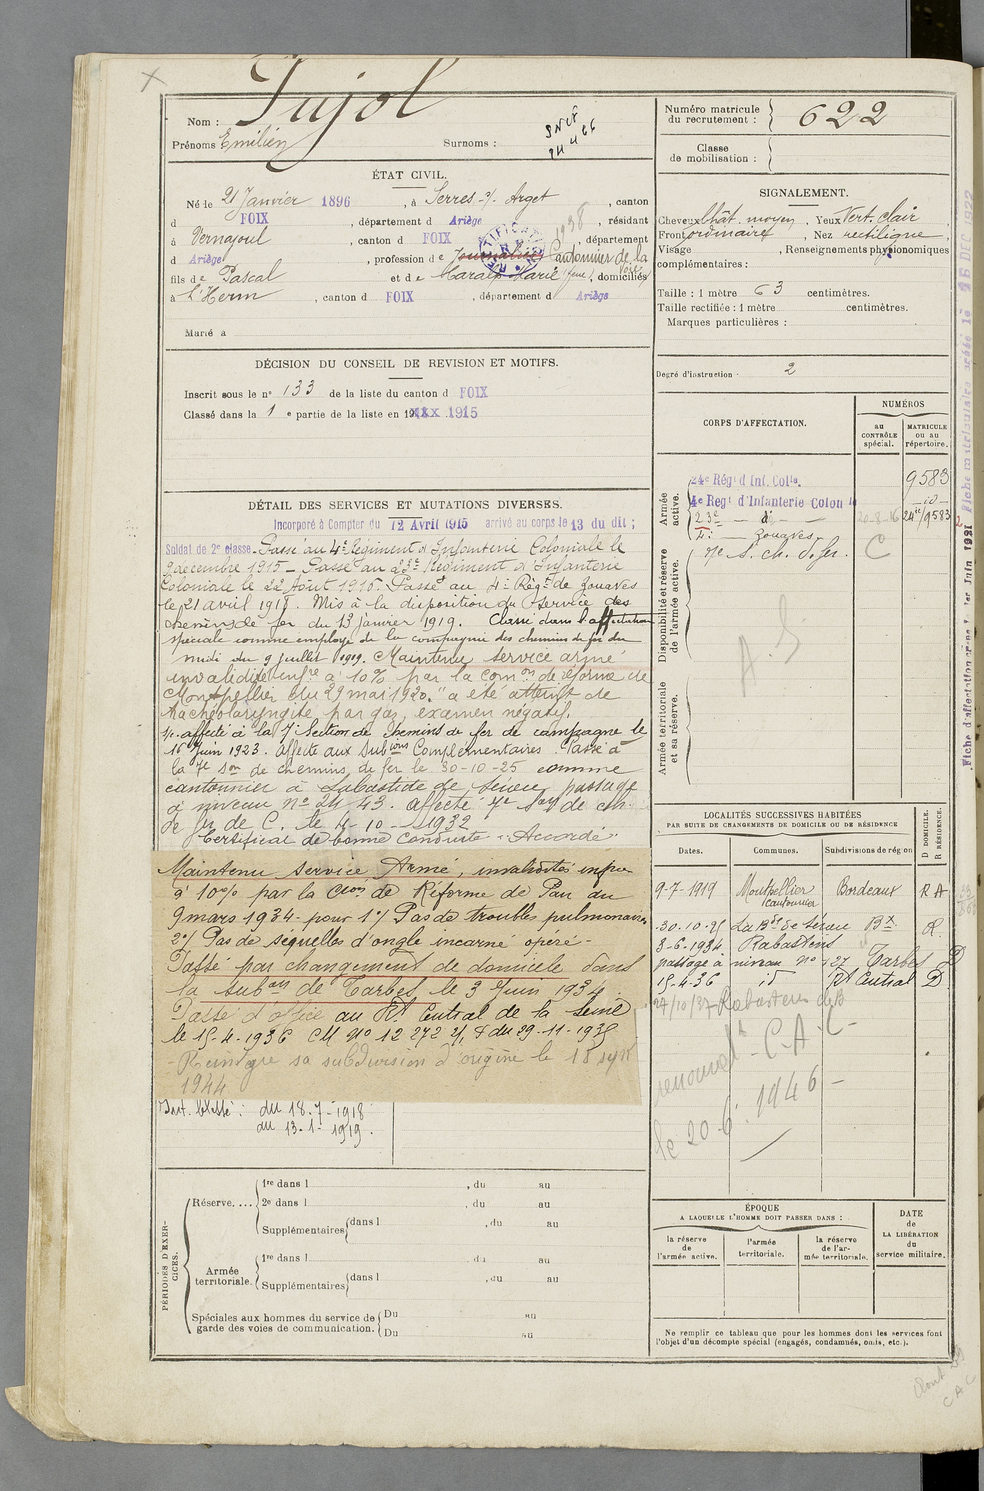 Pujol
Nom :
Prénoms Emilien
Surnoms :
SNCF
24 4 66
ÉTAT CIVIL.
Né le 21 Janvier 1896, à Serres-s/-Arget, canton
d FOIX, département d Ariège, résidant
à Vernajoul, canton d FOIX, département
d Ariège, profession de Journalier Cantonnier de la voie
fils de Pascal et de Marie, domiciliés
à L'Herm, canton d FOIX, département d Ariège
Marié à
DÉCISION DU CONSEIL DE REVISION ET MOTIFS.
Inscrit sous le n° 133 de la liste du canton d FOIX
Classé dans la 1 e partie de la liste en 1915
DÉTAIL DES SERVICES ET MUTATIONS DIVERSES.
Incorporé à Compter du 12 Avril 1915 arrivé au corps le 13 du dit ;
Soldat de 2e classe. Passé au 4e Régiment d'Infanterie Coloniale le
9 decembre 1915 - Passé au 23e Régiment d'Infanterie
Coloniale le 22 Août 1916. Passé au 4e Régt de Zouaves
le 21 avril 1917. Mis à la disposition du Service des
chemins de fer du 13 janvier 1919. Classé dans l'affectation
spéciale comme employé de la compagnie des chemins de fer du
midi du 9 juillet 1919. Maintenu service armé
invalidité infre à 10% par la Comon de réforme de
Montpellier du 29 mai 1920. "a été atteint de
trachéolaryngite par gaz, examen négatif.
affecté à la 7e Section de Chemins de fer de campagne le
16 Juin 1923. Affecté aux Subons Complémentaires. Passé à
la 7e Son de chemins de fer le 30-10-25 comme
cantonnier à Labastide de Sérou, passage
à niveau n° 24 43. affecté 7e Son de ch.
de fer de C. le 4-10-1932
Certificat de bonne conduite "Accordé"
Maintenu Service Armé, invalidités infre
à 10% par la Cion de Réforme de Pau du
9 mars 1934 - pour 1°/ Pas de troubles pulmonaires
2°/ Pas de séquelles d'ongle incarné opéré -
Passé par changement de domicile dans
la subon de Tarbes, le 3 Juin 1934.
Passé d'office au Rt Central de la Seine
le 15-4-1936 CM N° 12 272 du 29-11-1935
Réintègre sa subdivision d'origine le 18 sept
1944
Int. blessé : du 18-7-1918
du 13-1-1919.
PÉRIODES D'EXERCICES.
Réserve....
1re dans l , du au
2e dans l , du au
Supplémentaires dans l , du au
du au
Armée territoriale.
1re dans l , du au
Supplémentaires dans l , du au
du au
Spéciales aux hommes du service de garde des voies de communication.
Du au
Du au
Numéro matricule du recrutement : 622
Classe de mobilisation :
SIGNALEMENT.
Cheveux chât. moyen, Yeux Vert. clair
Front ordinaire, Nez rectiligne,
Visage , Renseignements physionomiques
complémentaires :
Taille : 1 mètre 63 centimètres.
Taille rectifiée : 1 mètre centimètres.
Marques particulières :
Degré d'instruction · 2
CORPS D'AFFECTATION.
NUMÉROS
AU CONTRÔLE spécial.
MATRICULE ou au répertoire.
Armée active.
24e Régt d Inf. Colle. 9583
4e Regt d'Infanterie Colon le -id-
23e - d° - 20-8-16 24e/9583
4e - Zouaves
Disponibilité et réserve de l'armée active.
7e S. ch. d. fer. C
A.S
Armée territoriale et sa réserve.
LOCALITÉS SUCCESSIVES HABITÉES
PAR SUITE DE CHANGEMENTS DE DOMICILE OU DE RÉSIDENCE
D DOMICILE.
R RÉSIDENCE.
Dates. Communes. Subdivisions de région
9-7-1919 Montpellier Bordeaux R A
cantonnier
30.10.25 La Bde de Sérou Bx R.
8-6-1934 Rabastens
passage à niveau n° 127 Tarbes D
15-4-36 id Rt Central D
27/10/37 Rabastens de B
renouvelt C-A-C-
le 20-6-1946 -
ÉPOQUE
A LAQUELLE L'HOMME DOIT PASSER DANS :
la réserve de l'armée active.
l'armée territoriale.
la réserve de l'armée territoriale.
DATE de LA LIBÉRATION du service militaire.
Ne remplir ce tableau que pour les hommes dont les services font
l'objet d'un décompte spécial (engagés, condamnés, omis, etc.).
Août
C A C